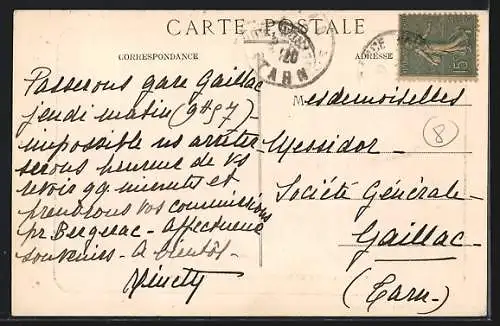 CARTE POSTALE
CORRESPONDANCE
ADRESSE
TARN
15
Passerons gare Gaillac
jeudi matin (9H57)
impossible ns arrêter
serons heureux de vs
revoir qq minutes et
prendrons vos commissions
pr Bergerac - Affectueux
souvenirs - A bientôt -
Mesdemoiselles
Messidor -
Société Générale -
Gaillac -
(Tarn -)
8